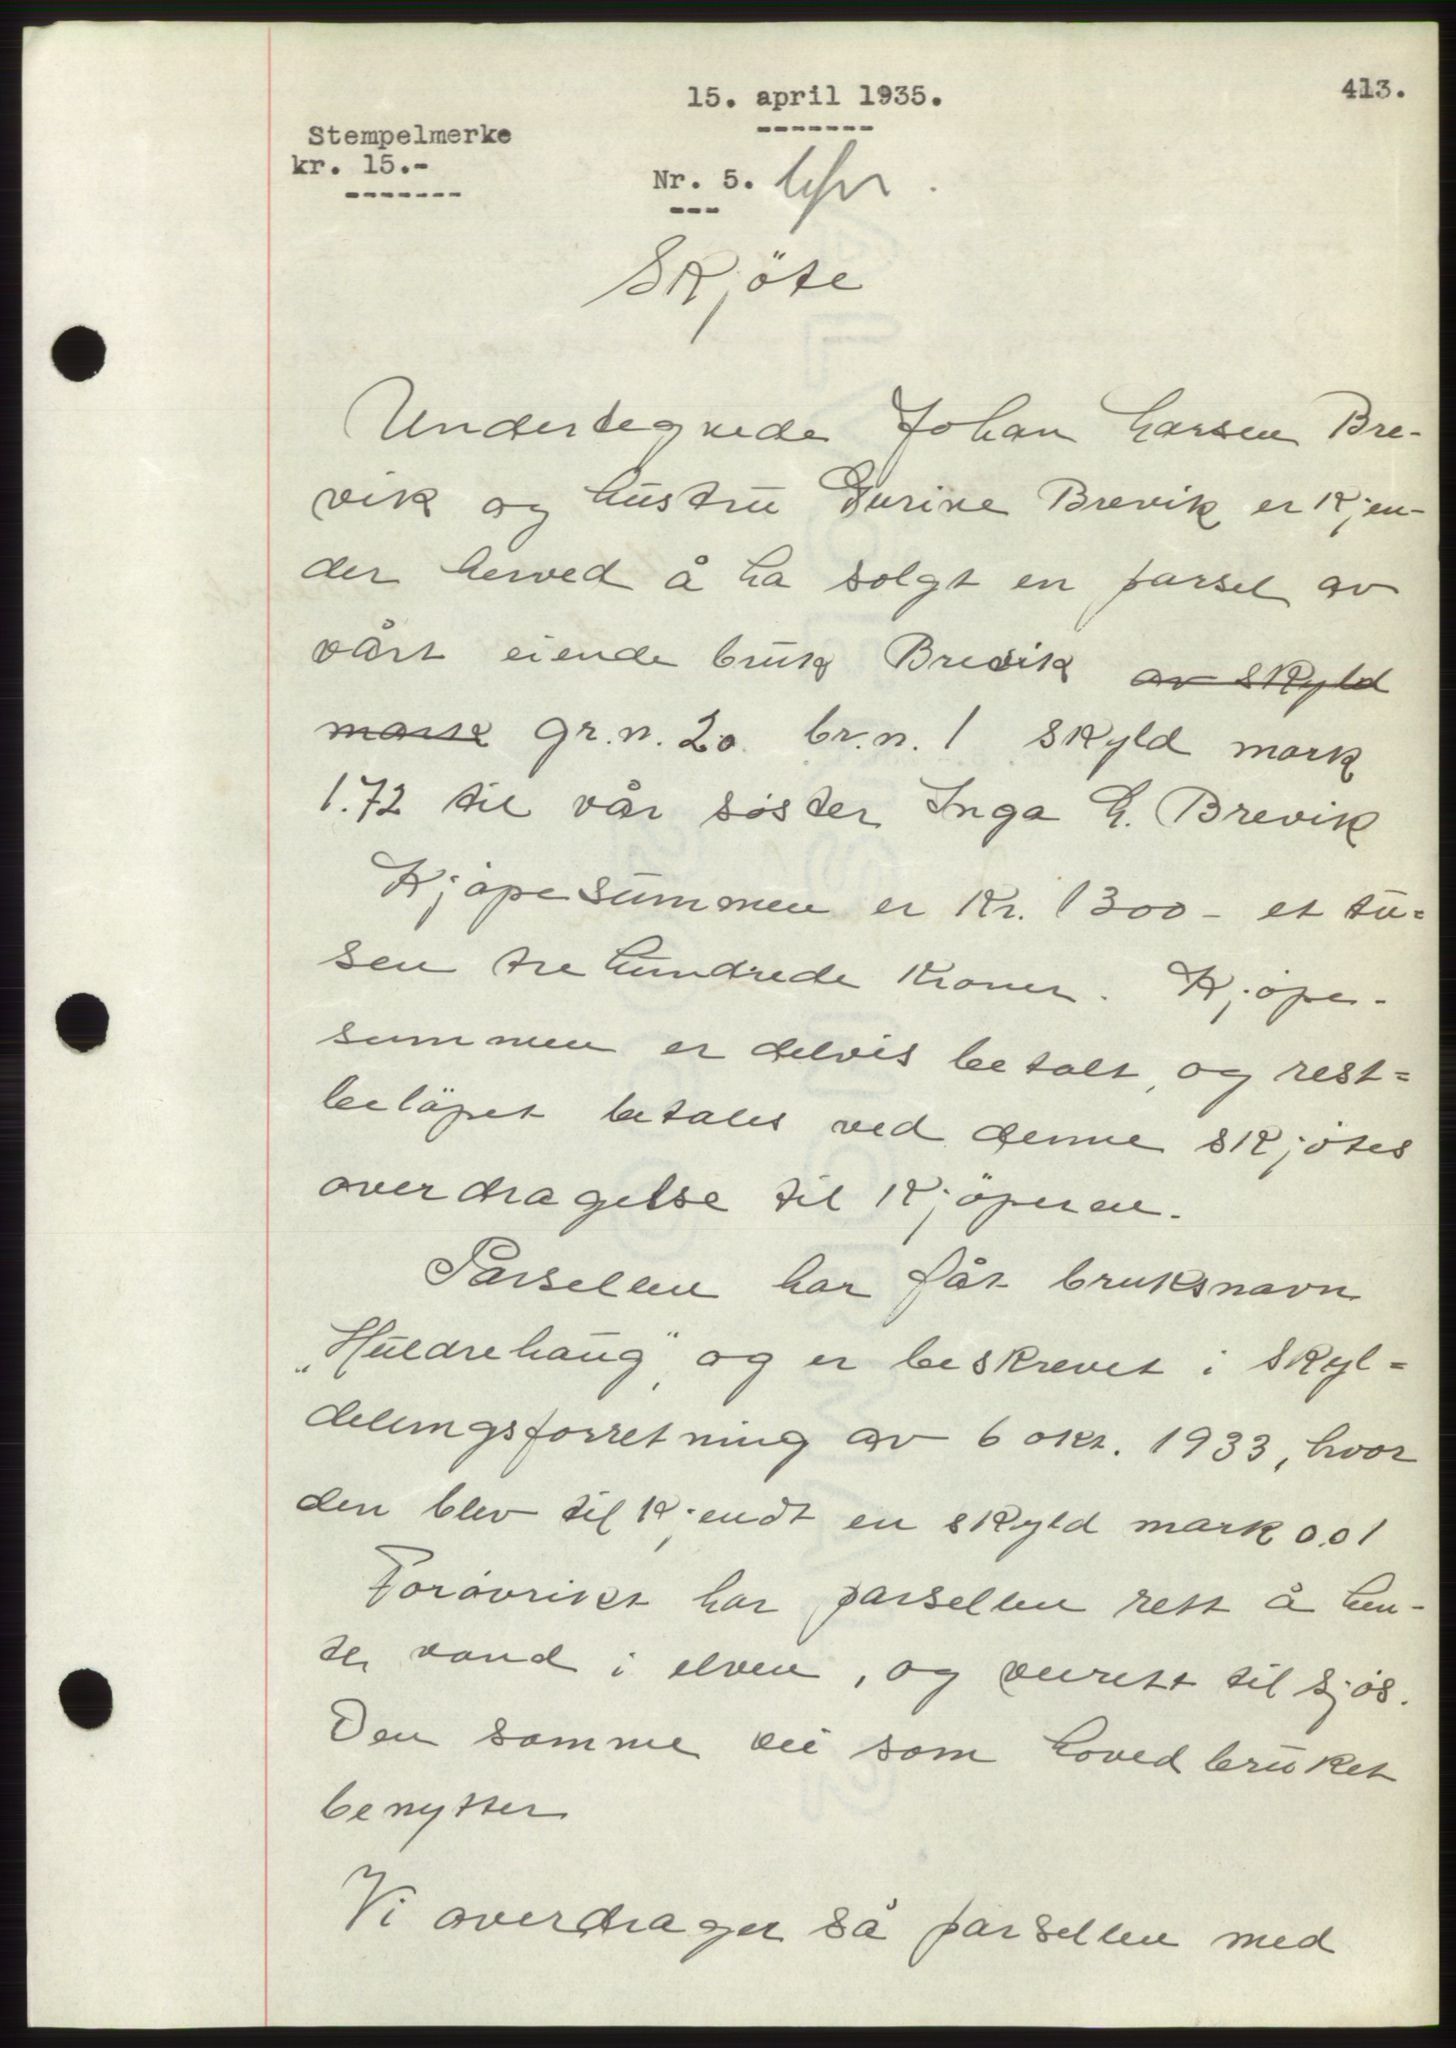 413.
15. april 1935.
Stempelmerke
kr. 15.-
Nr. 5.
Skjöte
Undertegnede Johan Larsen Bre-
vik og hustru Gurine Brevik er kjen-
der herved å ha solgt en parsel av
vårt eiende bruk Brevik av skyld
mark gr.n. 20. br.n. 1 skyld mark
1.72 til vår søster Inga L. Brevik
Kjøpesummen er kr. 1300 - et tu=
sen tre hundrede kroner. Kjøpe-
summen er delvis betalt, og rest=
beløpet betales ved denne skjøtes
overdragelse til kjöperen.
Parsellen har fåt bruksnavn
„Huldrehaug", og er beskrevet i skyl=
delingsforretning av 6 okt. 1933, hvor
den blev tilkjendt en skyld mark 0.01
Forøvrikt har parsellen rett å hen-
te vand i elven, og veirett til sjøs.
Den samme vei som hovedbruket
benytter
Vi overdrager så parsellen med